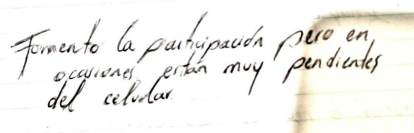 Fomento la participación pero en
ocasiones están muy pendientes
del celular.